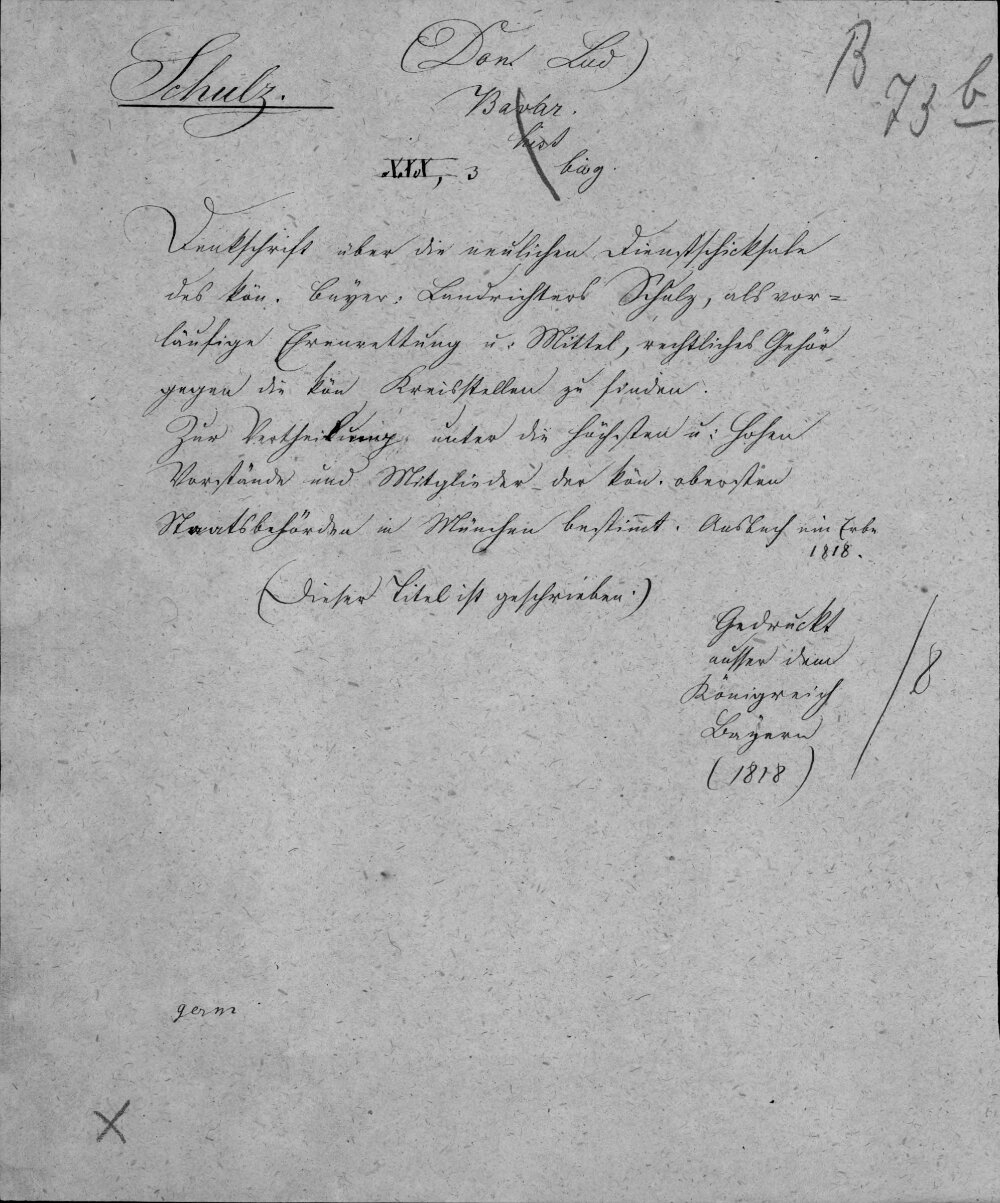 (Don. Lud)
Schulz.
B 73 b
Bavar.
hist
XXX, 3
biog.
Denkschrift über die neulichen Dienstschicksale
des kön. bayer: Landrichters Schulz, als vor=
läufige Ehrenrettung u: Mittel, rechtliches Gehör
gegen die kön Kreisstellen zu finden.
Zur Vertheilung unter die höchsten u: hohen
Vorstände und Mitglieder der kön. obersten
Staatsbehörden in München bestimmt. Ansbach
1818.
(Dieser Titel ist geschrieben.)
Gedruckt
ausser dem
Königreich
Bayern
(1818)
8
germ
X